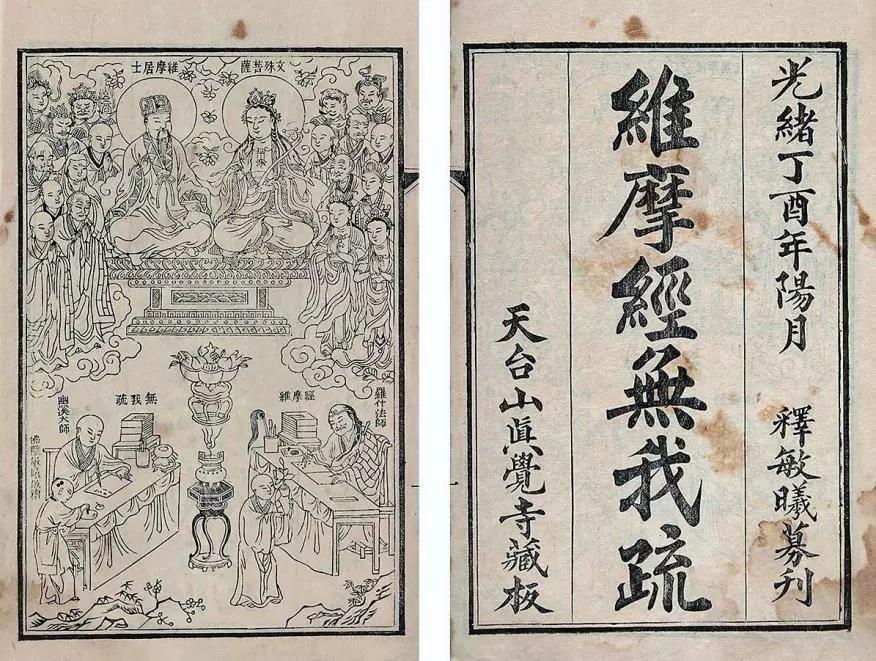 光緒丁酉年陽月
釋敏曦募刊
維摩經無我疏
天台山眞覺寺藏板
文殊菩薩
維摩居士
羅什法師
維摩經
無我疏
幽溪大師